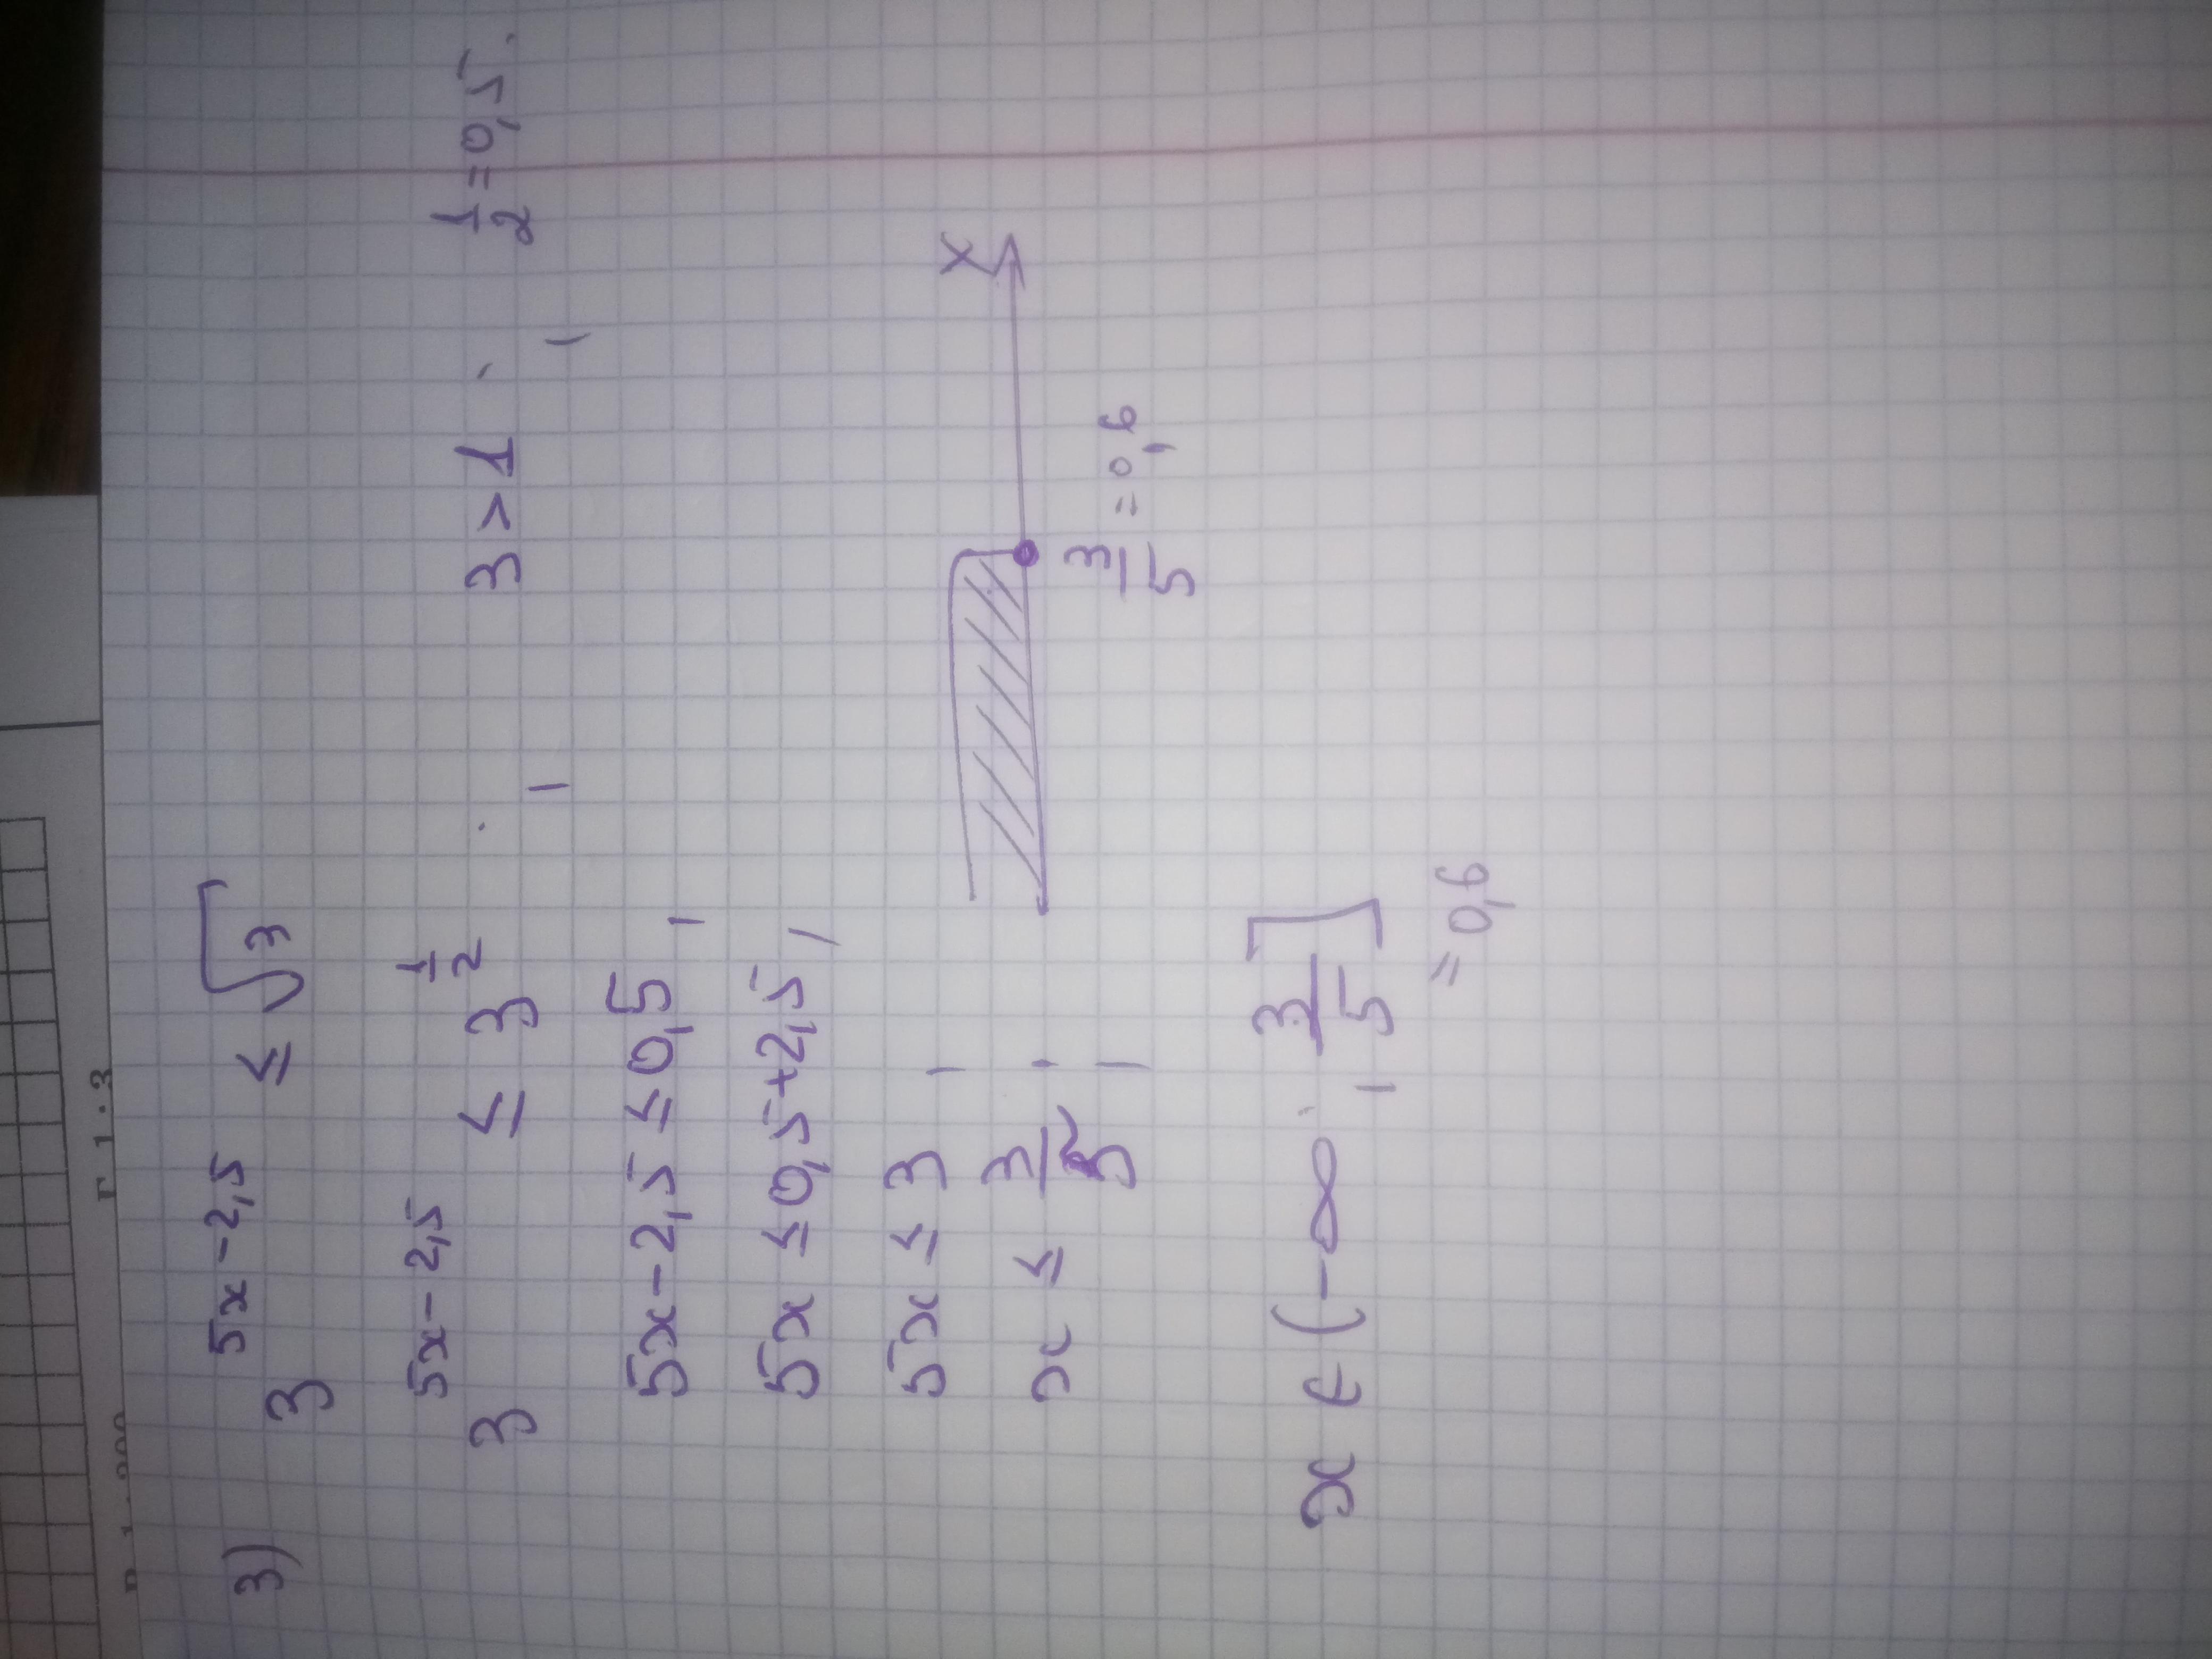 3) 3^{5x-2,5} ≤ √3
3^{5x-2,5} ≤ 3^{1/2} ; 3>1 ; 1/2=0,5.
5x-2,5 ≤ 0,5,
5x ≤ 0,5+2,5,
5x ≤ 3,
x ≤ 3/5 ;
X
3/5 = 0,6
x ∈ (-∞ ; 3/5]
= 0,6
Г 1·3